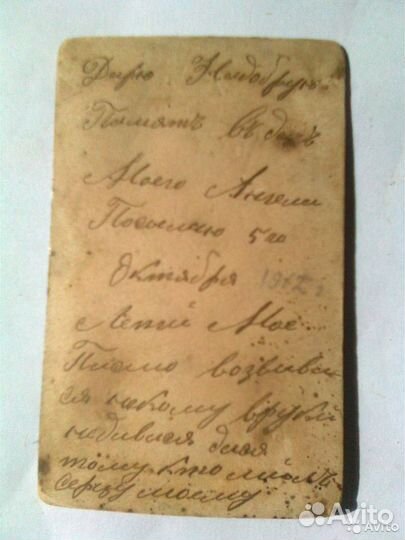 Дарю Надобрую
Память въ день
Моего Ангела
Посылаю 5 го
Октября 1912 г
Лети Мое
Писмо возвива
ся никому вруки
недавися
тому кто милъ
серцу моему
Avito